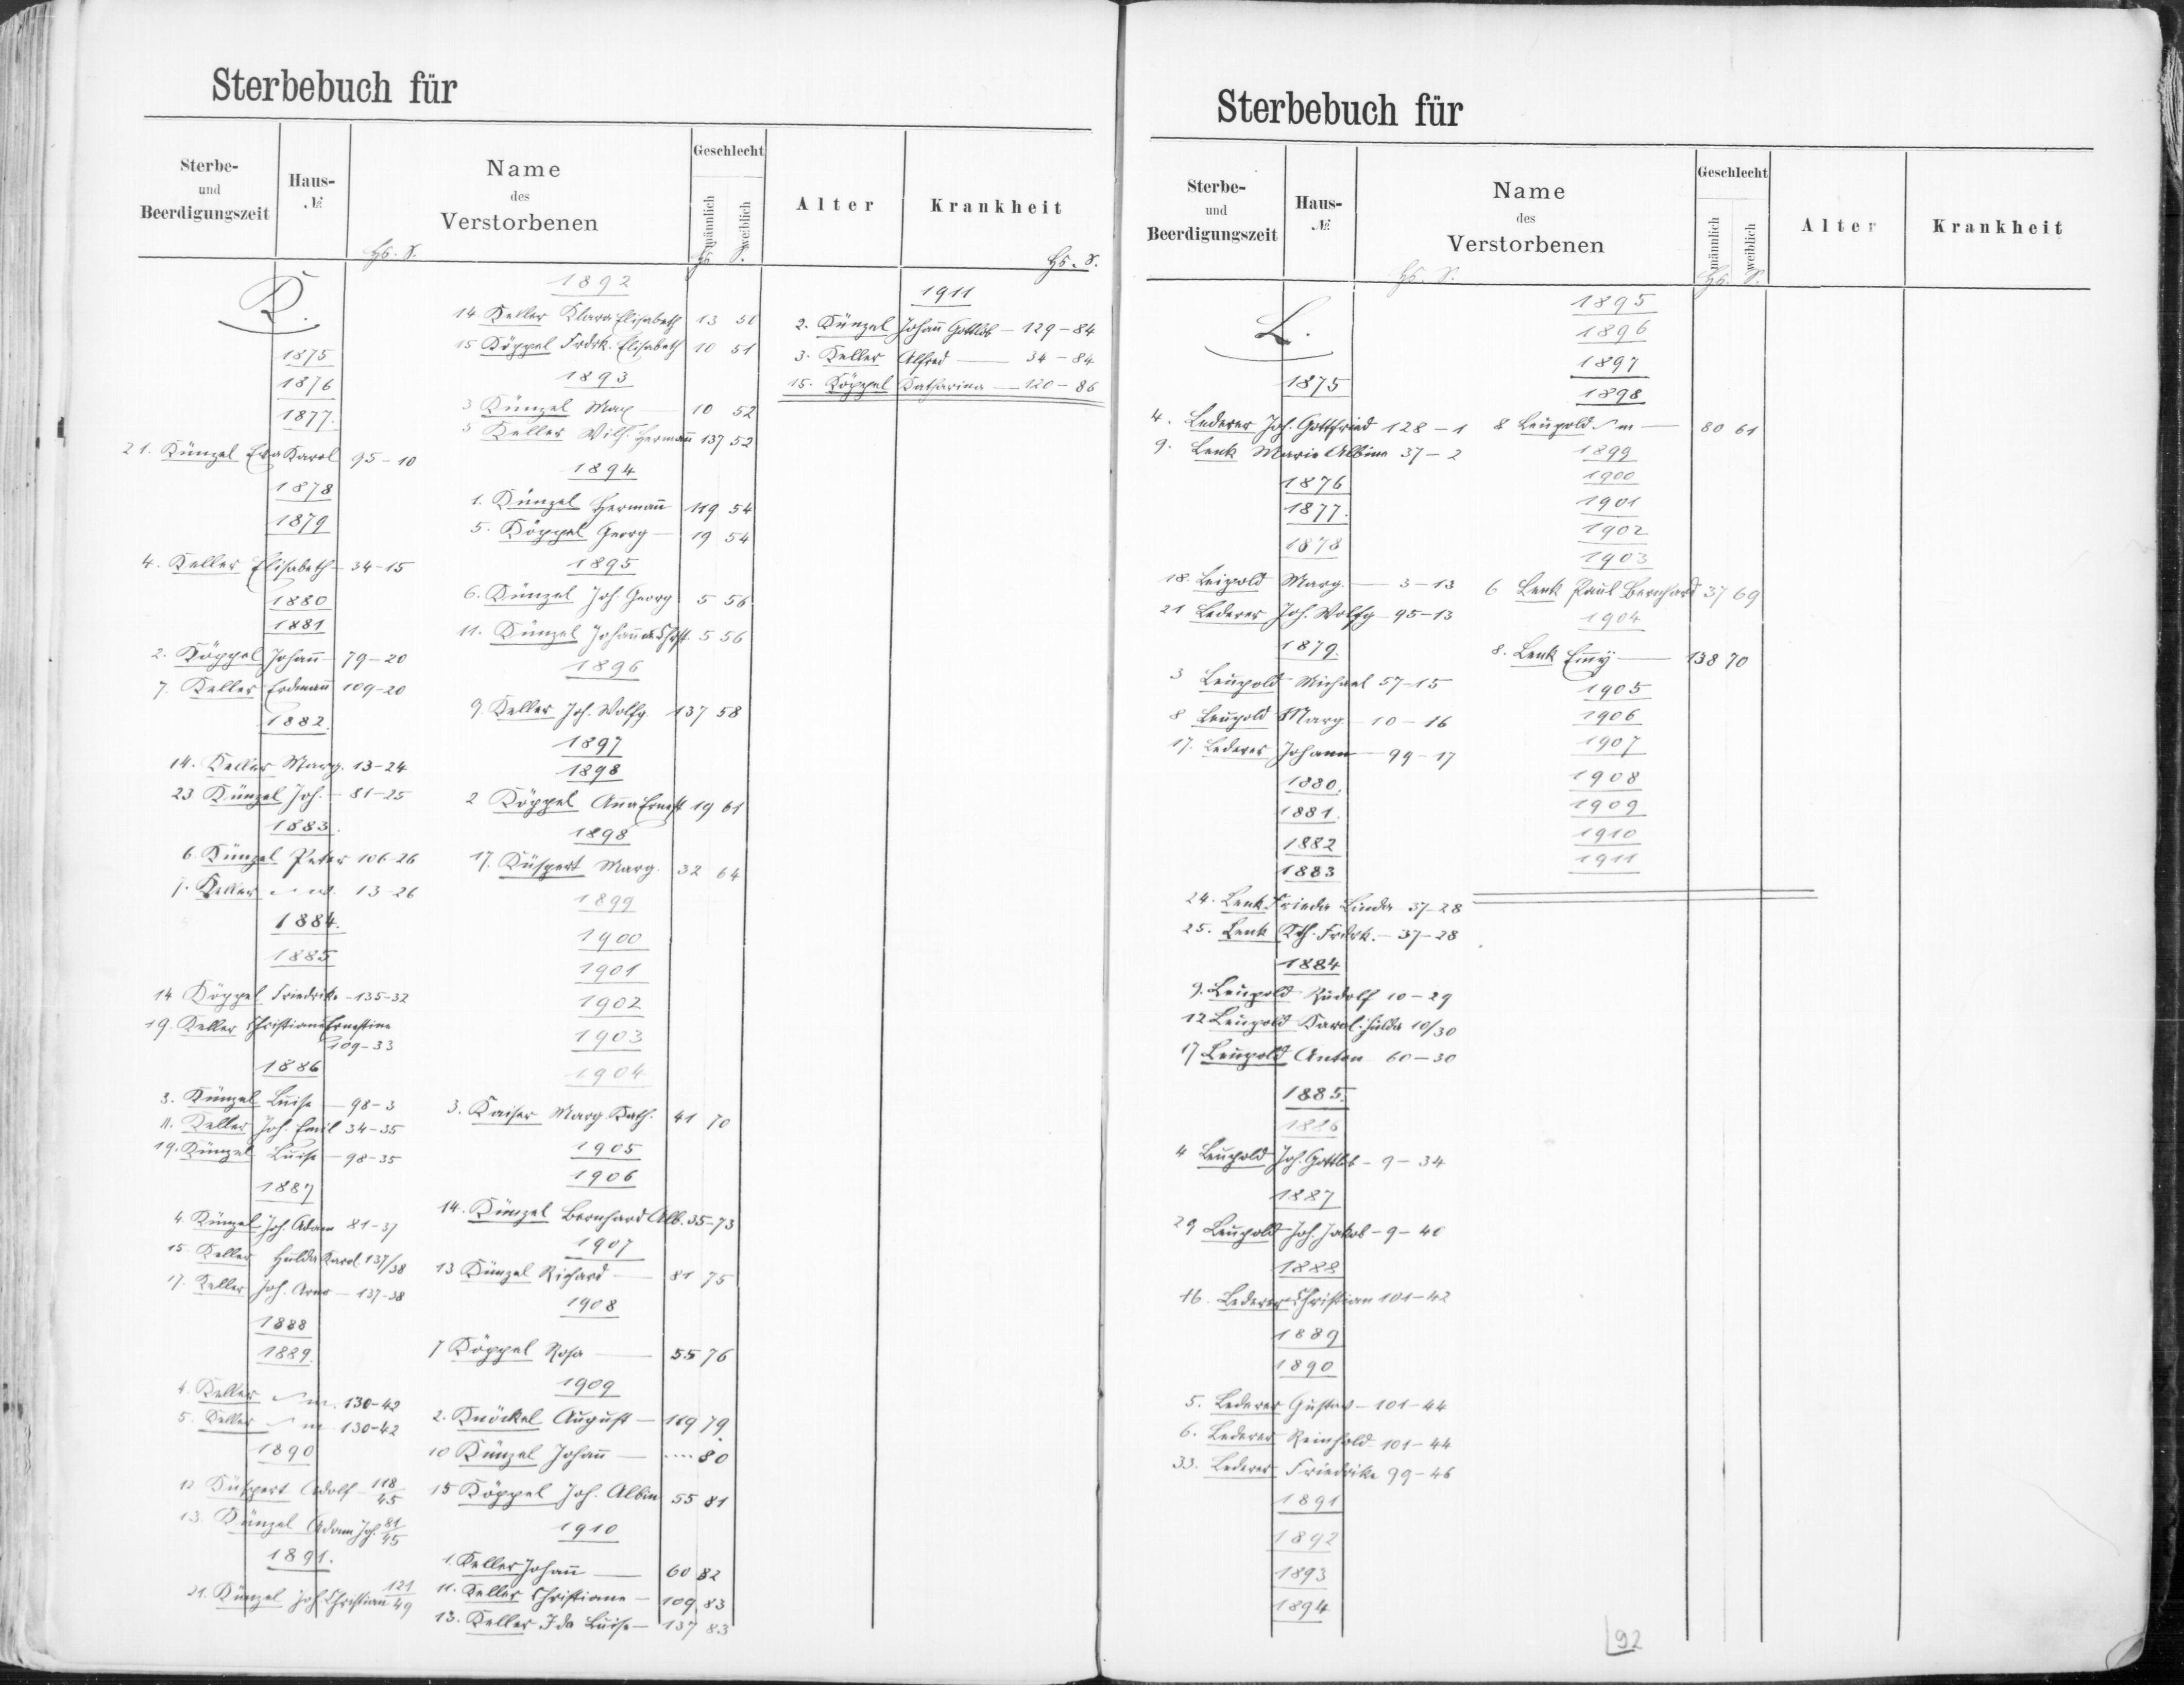 Sterbebuch für
Sterbe-
und
Beerdigungszeit
Haus-
№
Name
des
Verstorbenen
Geschlecht
männlich
weiblich
Alter
Krankheit
Hs. S.
Hs. S.
Hs. S.
K.
1875
1876
1877.
21. Künzel Eva Karol 95-10
1878
1879
4. Keller Elisabeth - 34-15
1880
1881
2. Köppel Johann - 79-20
7. Keller Erdmann 109-20
1882.
14. Keller Marg. 13-24
23 Künzel Joh. - 81-25
1883.
6. Künzel Peter 106-26
7. Keller 13-26
1884.
1885
14 Köppel Friedrike - 135-32
19. Keller Christiane Ernestine
109-33
1886
3. Künzel Luise - 98-3
11. Keller Joh. Emil 34-35
19. Künzel Luise - 98-35
1887
4. Künzel Joh. Adam 81-37
15. Keller Hulda Karol. 137/38
17. Keller Joh. Arno - 137-38
1888
1889.
4. Keller m. 130-42
5. Keller m 130-42
1890
12 Küspert Adolf - 118/45
13. Künzel Adam Joh. 81/45
1891.
21. Künzel Joh. Christian 121/49
1892
14 Keller Klara Elisabeth 13 50
15 Köppel Frdrk. Elisabeth 10 51
1893
3 Künzel Max - 10 52
5 Keller Wilh. Hermann 137 52
1894
1. Künzel Hermann 119 54
5. Köppel Georg - 19 54
1895
6. Künzel Joh. Georg 5 56
11. Künzel Johanna Christ. 5 56
1896
9. Keller Joh. Wolfg. 137 58
1897
1898
2 Köppel Anna Ernest 19 61
1898
17. Küspert Marg. 32 64
1899
1900
1901
1902
1903
1904
3. Kaiser Marg. Kath. 41 70
1905
1906
14. Künzel Bernhard Alb. 35-73
1907
13 Künzel Richard - 81 75
1908
7 Köppel Rosa - 55 76
1909
2. Knöckel August - 119 79
10 Künzel Johann - .... 80
15 Köppel Joh. Albin 55 81
1910
1. Keller Johann - 60 82
11. Keller Christiane - 109 83
13. Keller Ida Luise - 137 83
1911
2. Künzel Johann Gottlob - 129-84
3. Keller Alfred - 34-84
15. Köppel Katharina - 120-86
Sterbebuch für
Sterbe-
und
Beerdigungszeit
Haus-
№
Name
des
Verstorbenen
Geschlecht
männlich
weiblich
Alter
Krankheit
Hs. S.
Hs. S.
L.
1875
4. Lederer Joh. Gottfried 128-1
9. Lenk Marie Albine 37-2
1876
1877.
1878
18. Leipold Marg. - 3-13
21 Lederer Joh. Wolfg - 95-13
1879.
3 Leupold Michael 57-15
8 Leupold Marg - 10-16
17. Lederer Johann - 99-17
1880.
1881.
1882
1883
24. Lenk Frieda Linda 37-28
25. Lenk Kth. Frdrk. - 37-28
1884
9. Leupold Rudolf 10-29
12 Leupold Karol. Hulda 10/30
17 Leupold Anton 60-30
1885.
1886
4 Leupold Joh. Gottlob - 9-34
1887
29 Leupold Joh. Jakob - 9-40
1888
16. Lederer Christian 101-42
1889
1890
5. Lederer Gustav - 101-44
6. Lederer Reinhold 101-44
33. Lederer Friedrike 99-46
1891
1892
1893
1894
1895
1896
1897
1898
8 Leupold m - 80 61
1899
1900
1901
1902
1903
6 Lenk Paul Bernhard 37 69
1904
8. Lenk Emmy - 138 70
1905
1906
1907
1908
1909
1910
1911
92